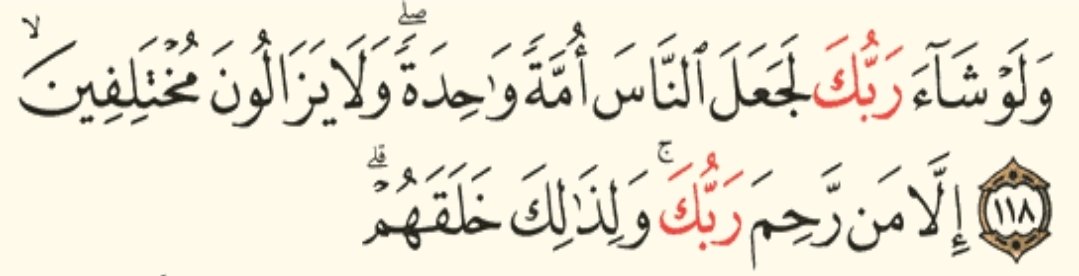 وَلَوۡ شَآءَ رَبُّكَ لَجَعَلَ ٱلنَّاسَ أُمَّةٗ وَٰحِدَةٗۖ وَلَا يَزَالُونَ مُخۡتَلِفِينَ ۙ
١١٨ إِلَّا مَن رَّحِمَ رَبُّكَۚ وَلِذَٰلِكَ خَلَقَهُمۡۗ